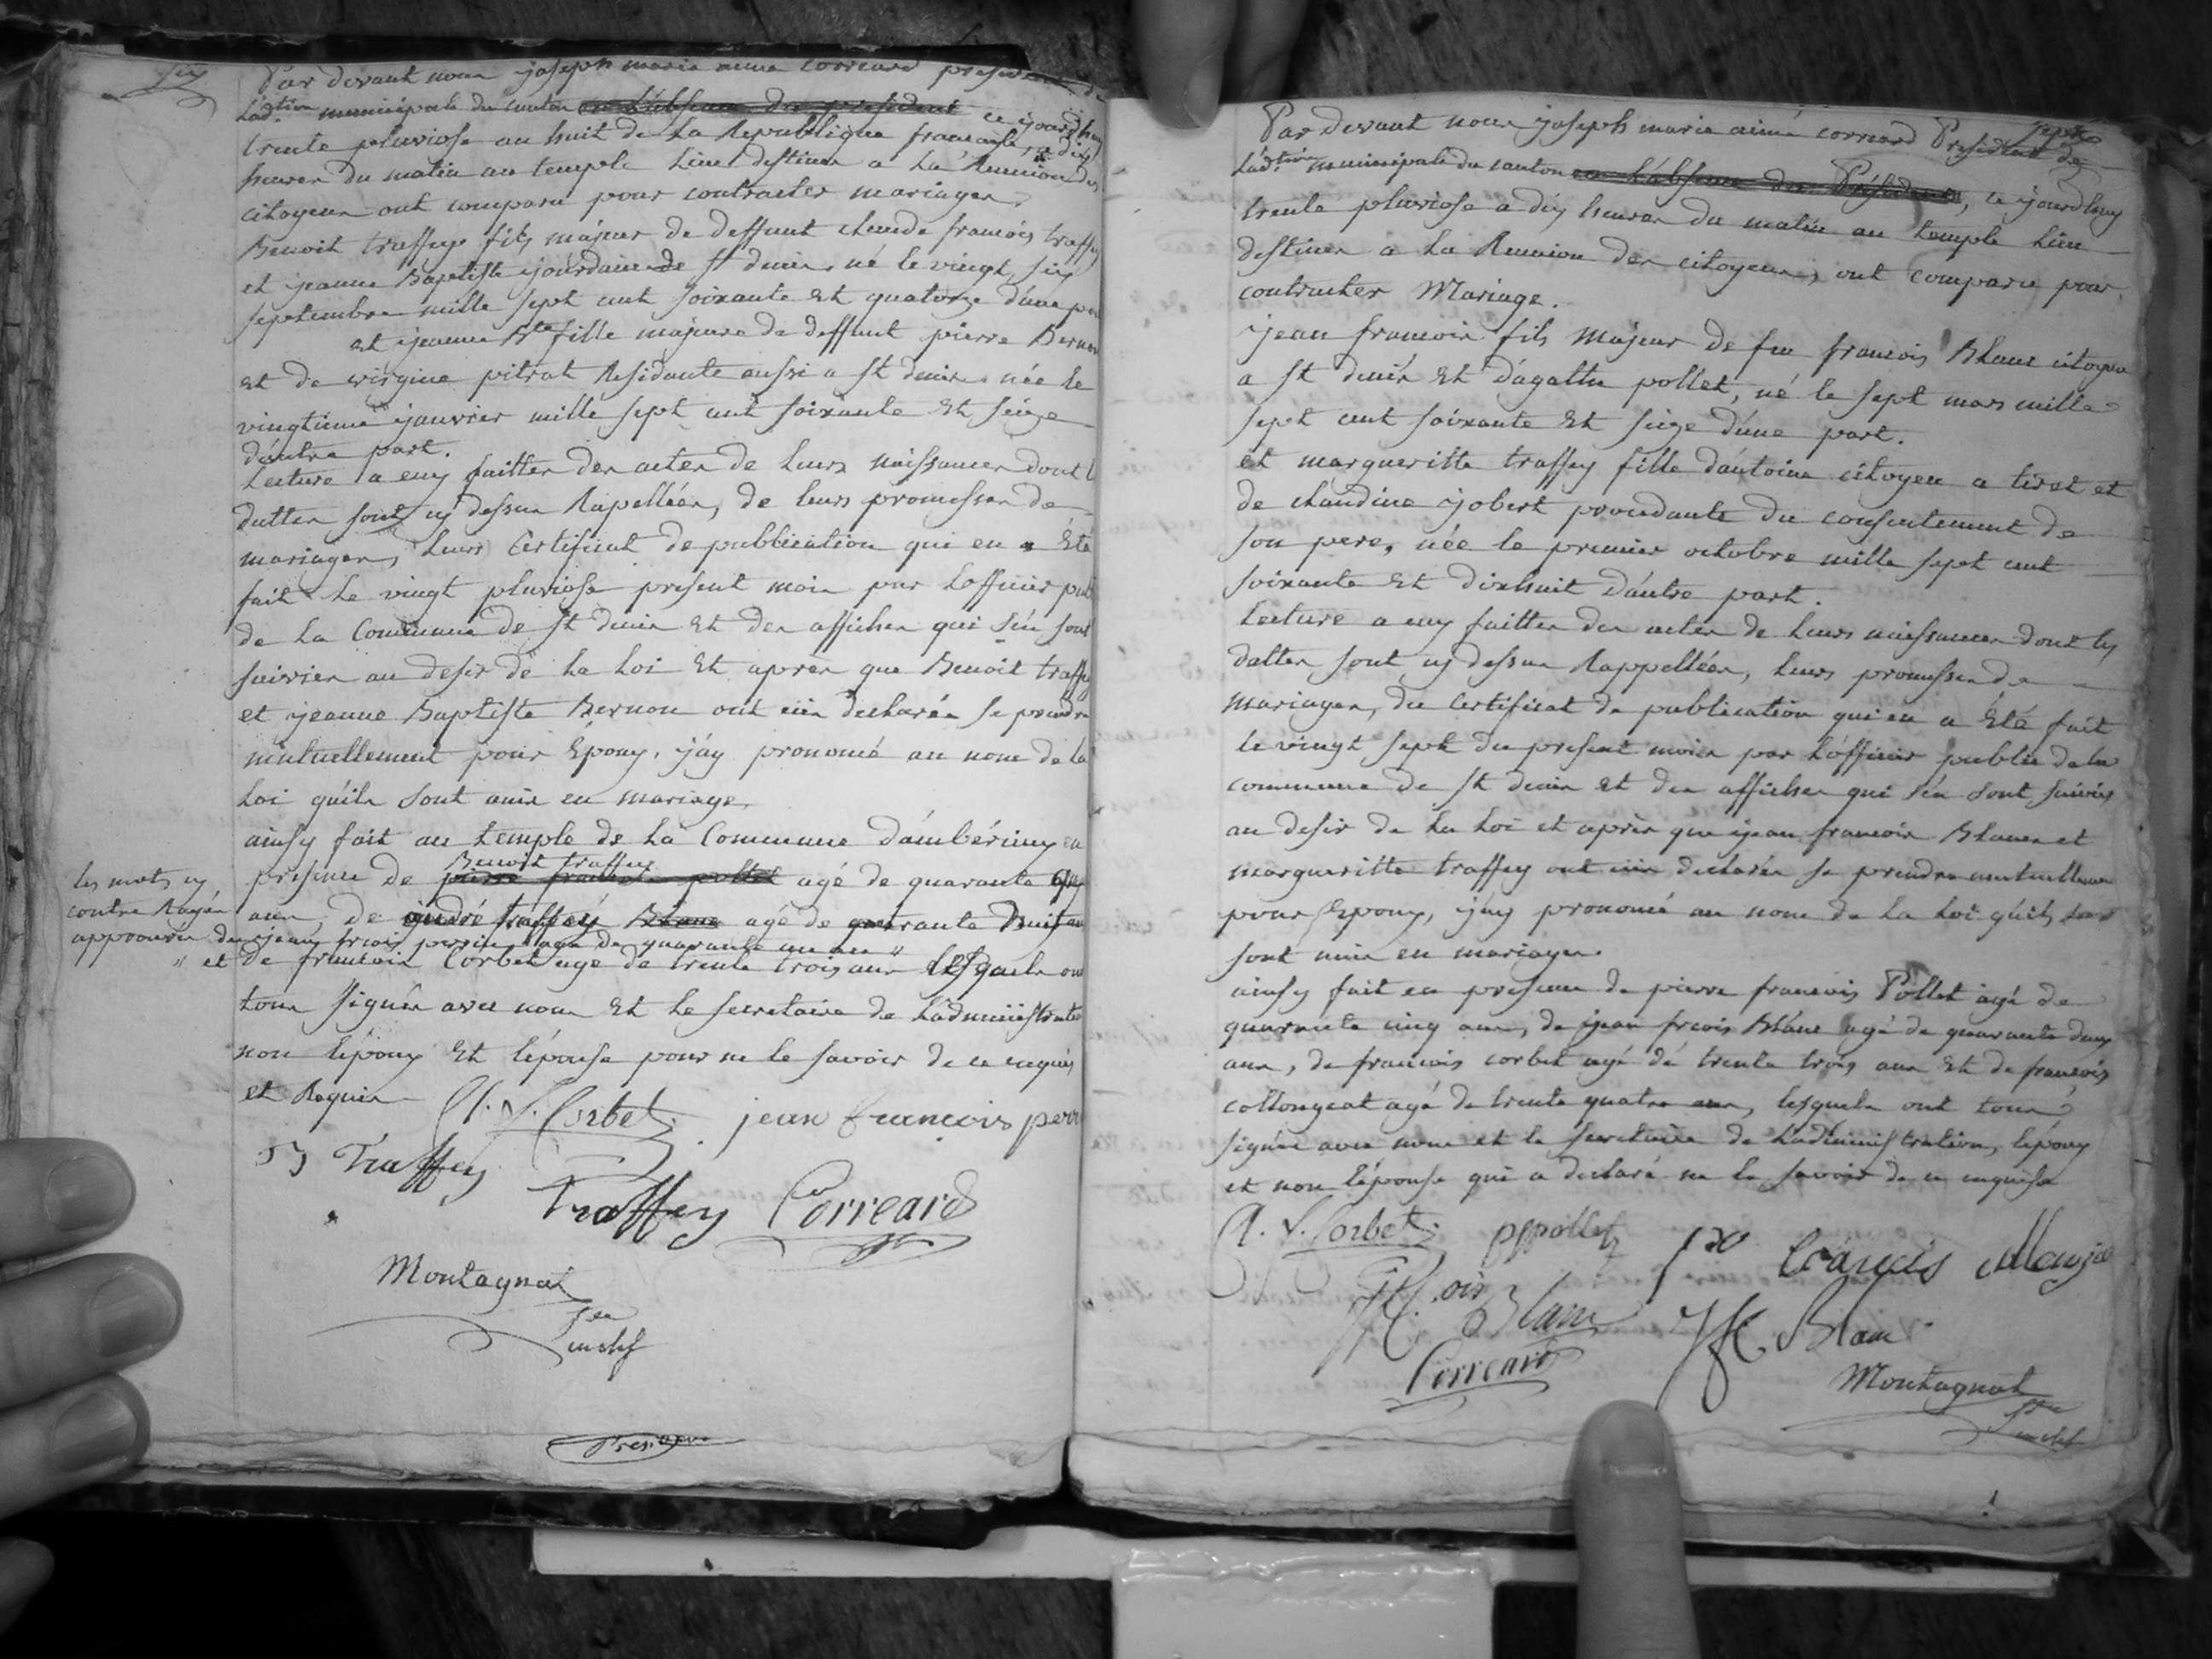 six
Par devant nous joseph marie aimé Correard president de
L'ad.tion municipale du canton en L'absence du president ce jourdhuy
trente pluviose an huit de La Republique francaise, a dix
heures du matin au temple Lieu destiné a La Reunion des
citoyens ont comparu pour contracter mariages.
Benoit traffey fils majeur de deffunt claude francois traffey
et jeanne Baptiste jourdain de st denis, né le vingt six
septembre mille sept cent soixante et quatorze d'une part
et jeanne Bte fille majeure de deffunt pierre Bernon
et de virgine pitrat Residante aussi a st denis née le
vingtieme janvier mille sept cent soixante et seize
d'autre part.
Lecture a euy faittes des actes de leurs naissances dont les
dattes sont cy dessus Rapellées, de leurs promesses de
mariages, leurs Certificat de publication qui en a Eté
fait le vingt pluviose present mois par Lofficier pub
de La Commune de st denis et des affiches qui s'en sont
suivies au desir de La Loi et après que Benoit traffey
et jeanne Baptiste Bernon ont declarés se prendre
mutuellement pour Epoux, j'ay prononcé au nom de la
Loi qu'ils sont unis en mariage,
ainsy fait au temple de La Commune d'ambérieux en
Benoit traffey
presence de pierre francois pollet agé de quarante
ans, de andré traffey Blanc agé de quarante huit ans
les mots cy
contre Rayés
approuvés
de jean frcois perrin agé de quarante un ans
" et de francois Corbet agé de trente trois ans Lesquels ont
tous signés avec nous et le secretaire de L'administration
non l'époux et l'épouse pour ne le savoir de ce enquis
et Requis
A. F. Corbet jean francois perr
B Traffey
Traffey Correard
Montagnat
sre
en chef
President
sept
Par devant nous joseph marie aimé correard President de
L'ad.tion municipale du canton en L'absence du Président, ce jourdhuy
trente pluviose a dix heures du matin au temple Lieu
destiné a La Reunion des citoyens, ont comparu pour
contracter Mariage.
jean francois fils majeur de feu francois Blanc citoyen
a st denis et d'agathe pollet, né le sept mars mille
sept cent soixante et seize d'une part.
et margueritte traffey fille d'antoine citoyen a tiret et
de claudine jobert procedante du consentement de
son pere, née le premier octobre mille sept cent
soixante et dixhuit d'autre part.
Lecture a euy faittes des actes de leurs naissances dont les
dattes sont cy dessus Rappellées, leurs promesses de
mariages, du certificat de publication qui en a été fait
le vingt sept du present mois par L'officier public de la
commune de st denis et des affiches qui s'en sont suivies
au desir de La Loi et après que jean francois Blanc et
margueritte traffey ont declarés se prendre mutuellement
pour Epoux, j'ay prononcé au nom de La Loi qu'ils
sont unis en mariages.
ainsy fait en presence de pierre francois Pollet agé de
quarante cinq ans, de jean frcois Blanc agé de quarante deux
ans, de francois corbet agé de trente trois ans et de francois
collongeat agé de trente quatre ans, lesquels ont tous
signés avec nous et le secretaire de L'administration, l'époux
et non l'épouse qui a declaré ne le savoir de ce enquise
A. F. Corbet ppollet francois
Blanc JF Blanc
Correard
Montagnat
sre
en chef